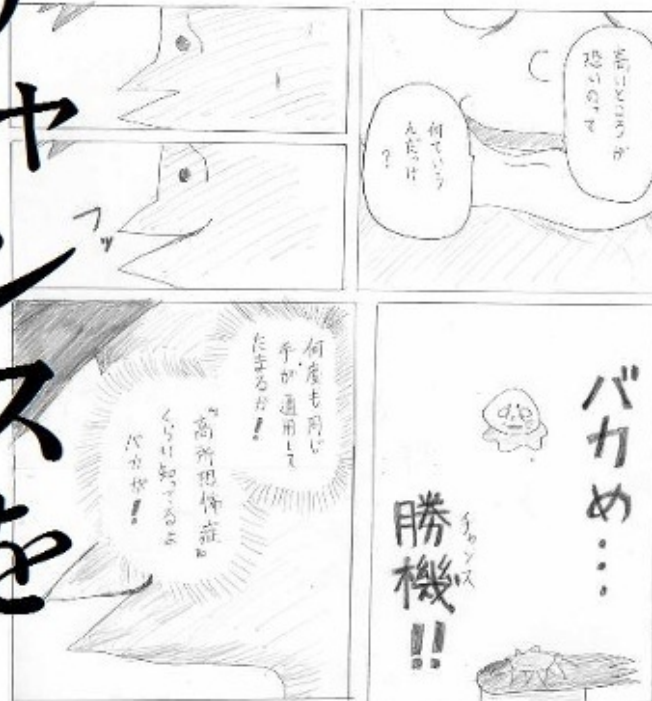 高いところが
恐いのって
何ていう
んだっけ
?
フッ
バカめ…
チャンス
勝機!!
何度も同じ
手が通用して
たまるか!
"高所恐怖症"
くらい知ってるよ
バカが!!
ャンスを